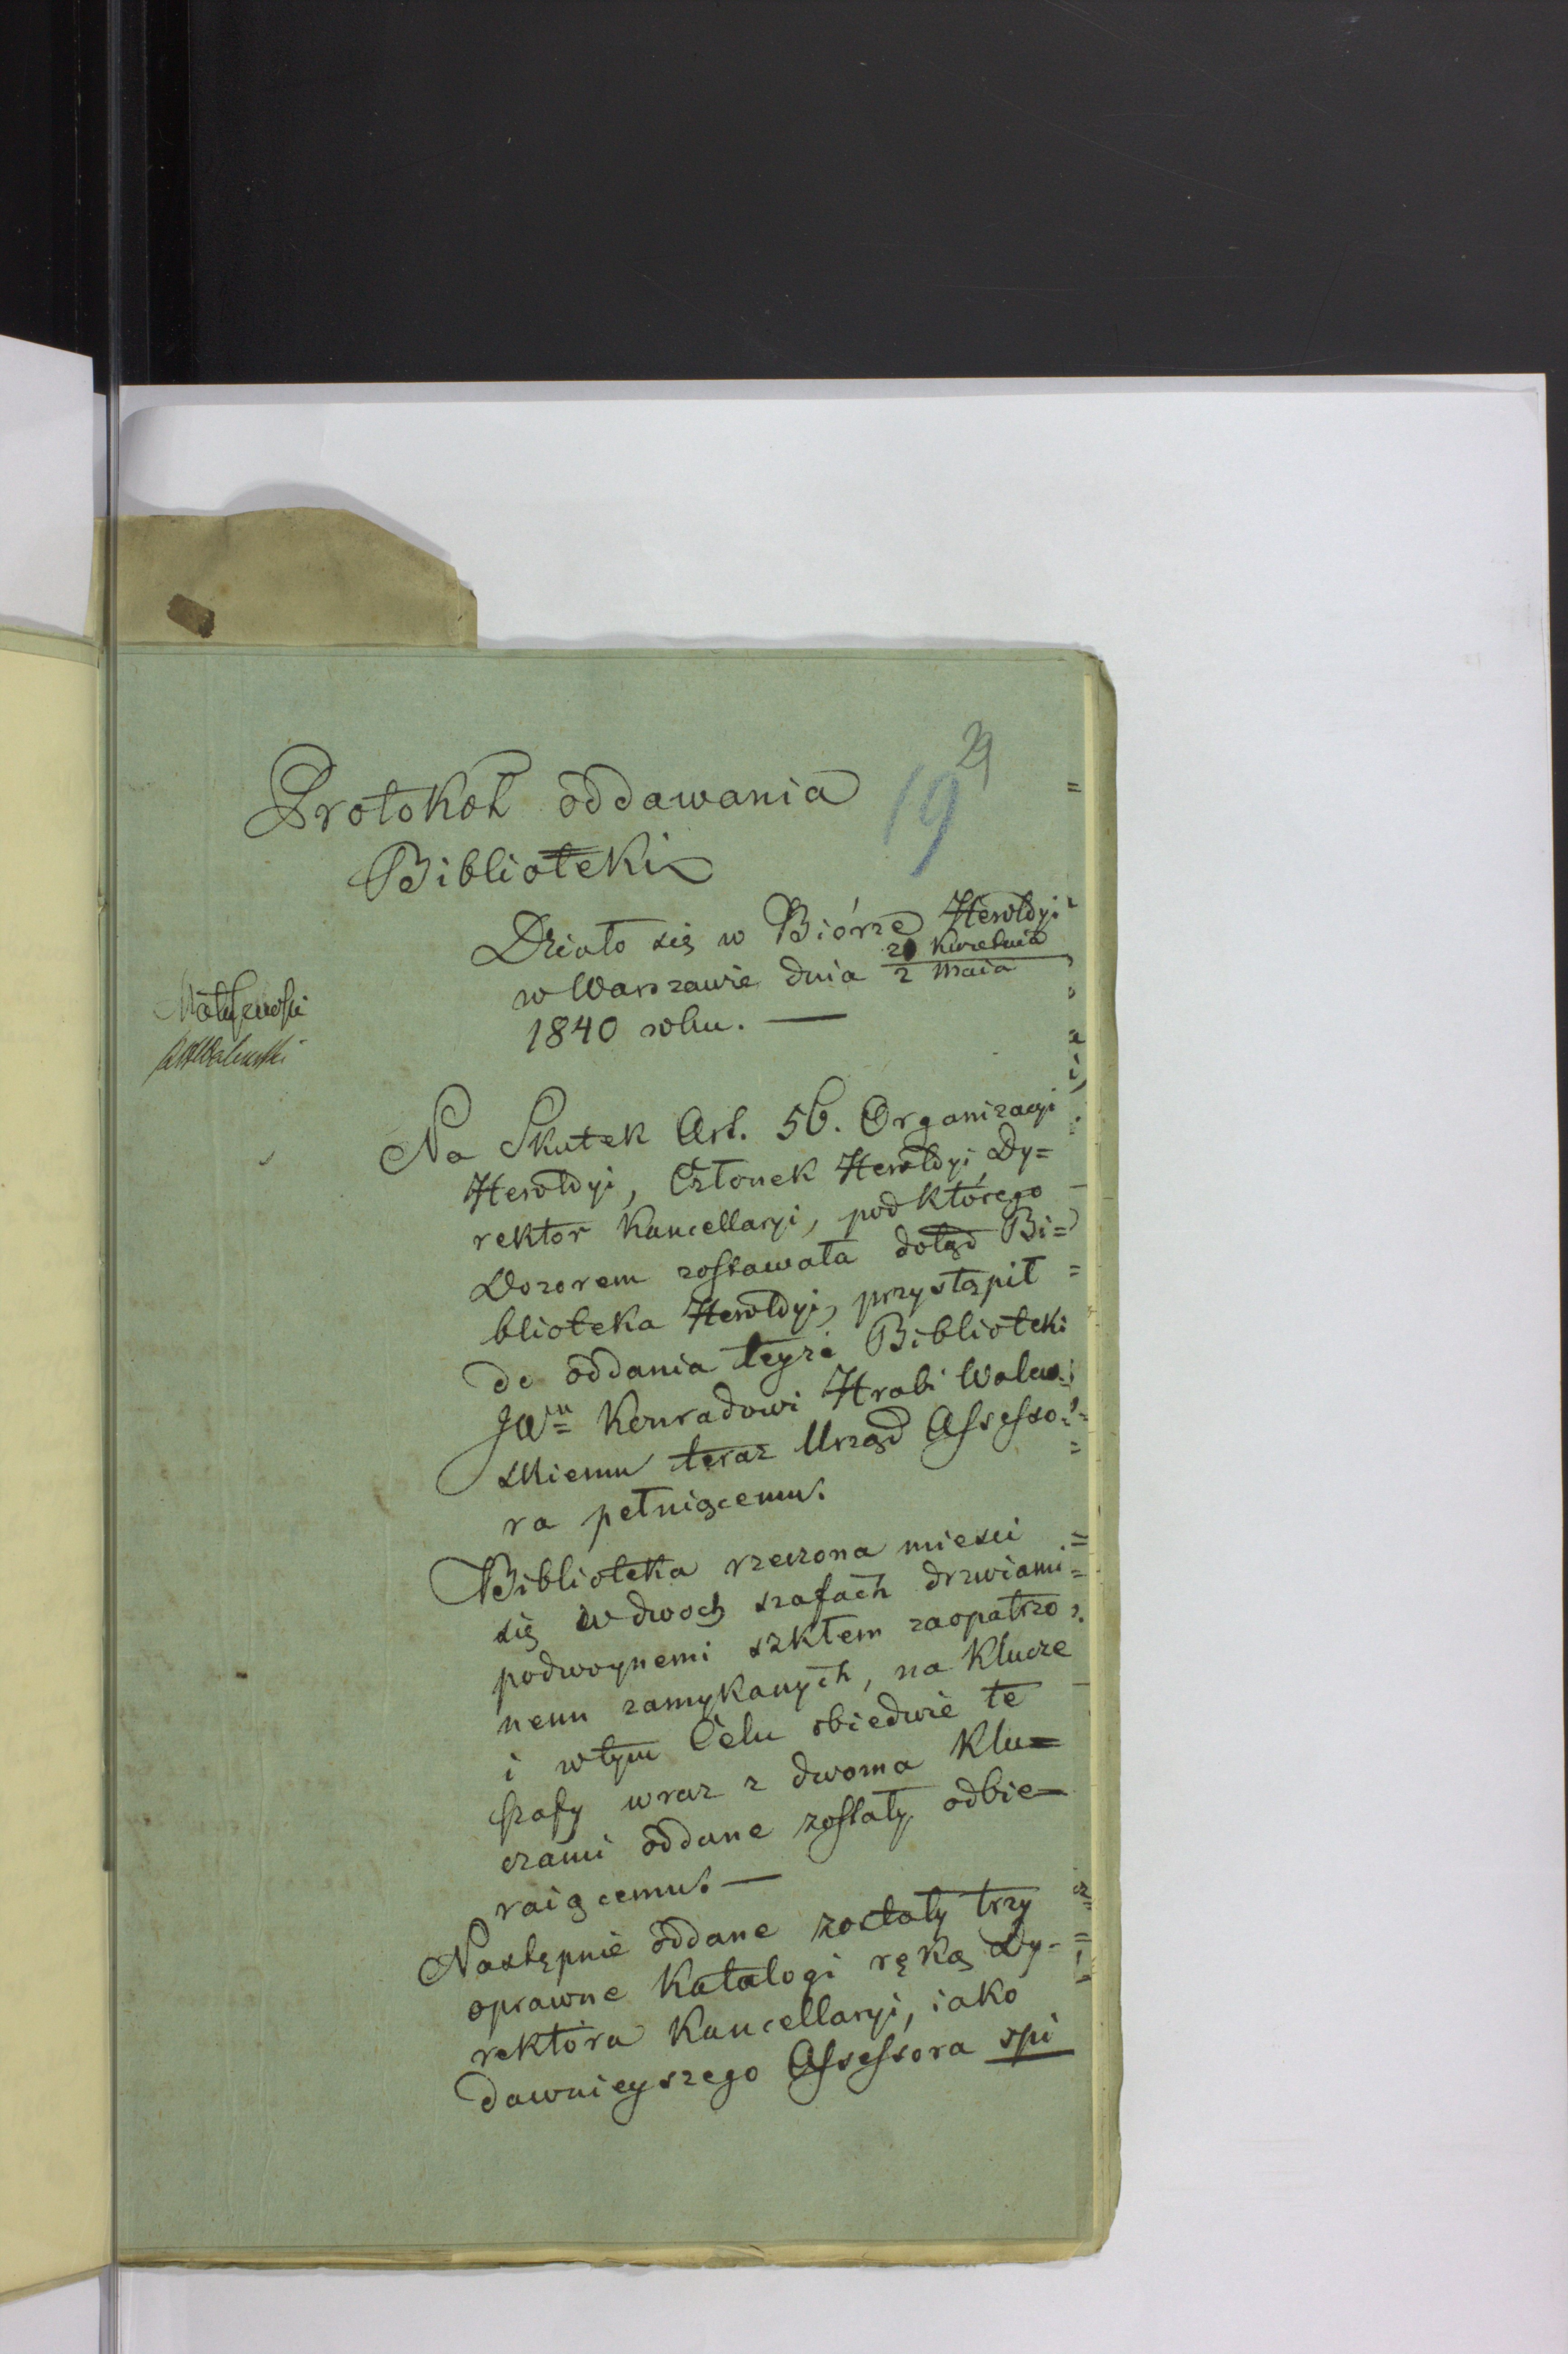 29
19
Protokół oddawania
Biblioteki
Działo się w Biórze Heroldyi
w Warszawie dnia 20 Kwietnia
2 Maia
1840 roku. —
Na Skutek Art. 56. Organizacyi
Heroldyi, Członek Heroldyi, Dy=
rektor Kancellaryi, pod którego
Dozorem zostawała dotąd Bi=
blioteka Heroldyi, przystąpił
do oddania teyże Biblioteki
JWu Konradowi Hrabi Walew=
skiemu teraz Urząd Assesso=
ra pełniącemu.
Biblioteka rzeczona mieści
się w dwoch szafach drzwiami
podwoynemi szkłem zaopatrzo
nemi zamykanych, na Klucze
i w tym Celu obiedwie te
szafy wraz z dwoma Klu=
czami oddane zostały odbie=
raiącemu. —
Następnie oddane zostały trzy
oprawne Katalogi ręką Dy=
rektora Kancellaryi, iako
dawnieyszego Assessora spi